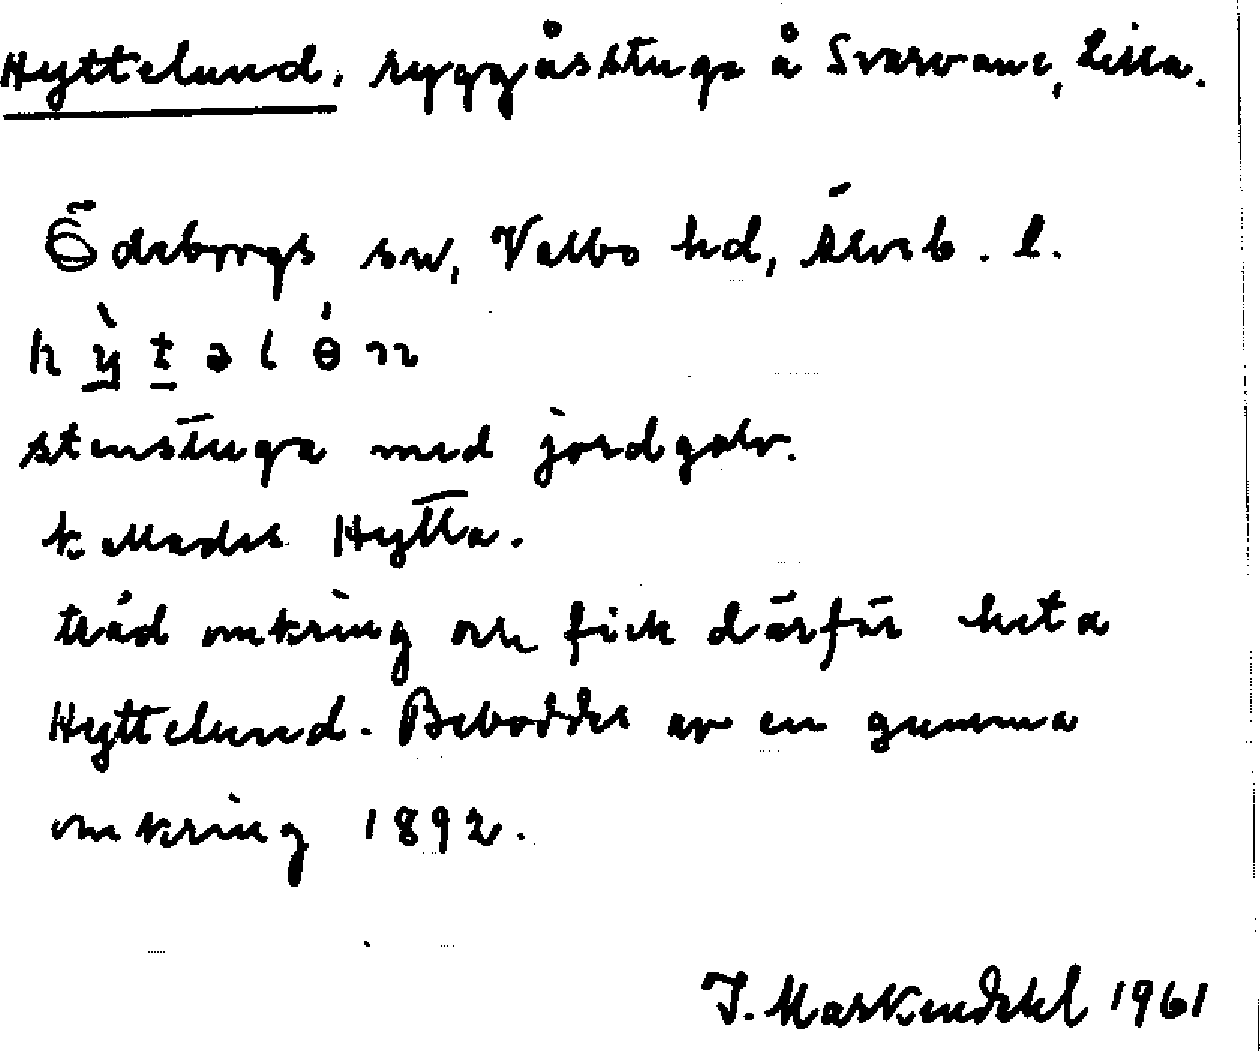 Hyttelund, ryggåsstuga å Svarvane, Lilla.
Ödeborgs sn, Valbo hd, Älvsb. l.
hỳtəlɵ́n
stenstuga med jordgolv.
kallades Hytta.
träd omkring och fick därför heta
Hyttelund. Beboddes av en gumma
omkring 1892.
J. Markendahl 1961